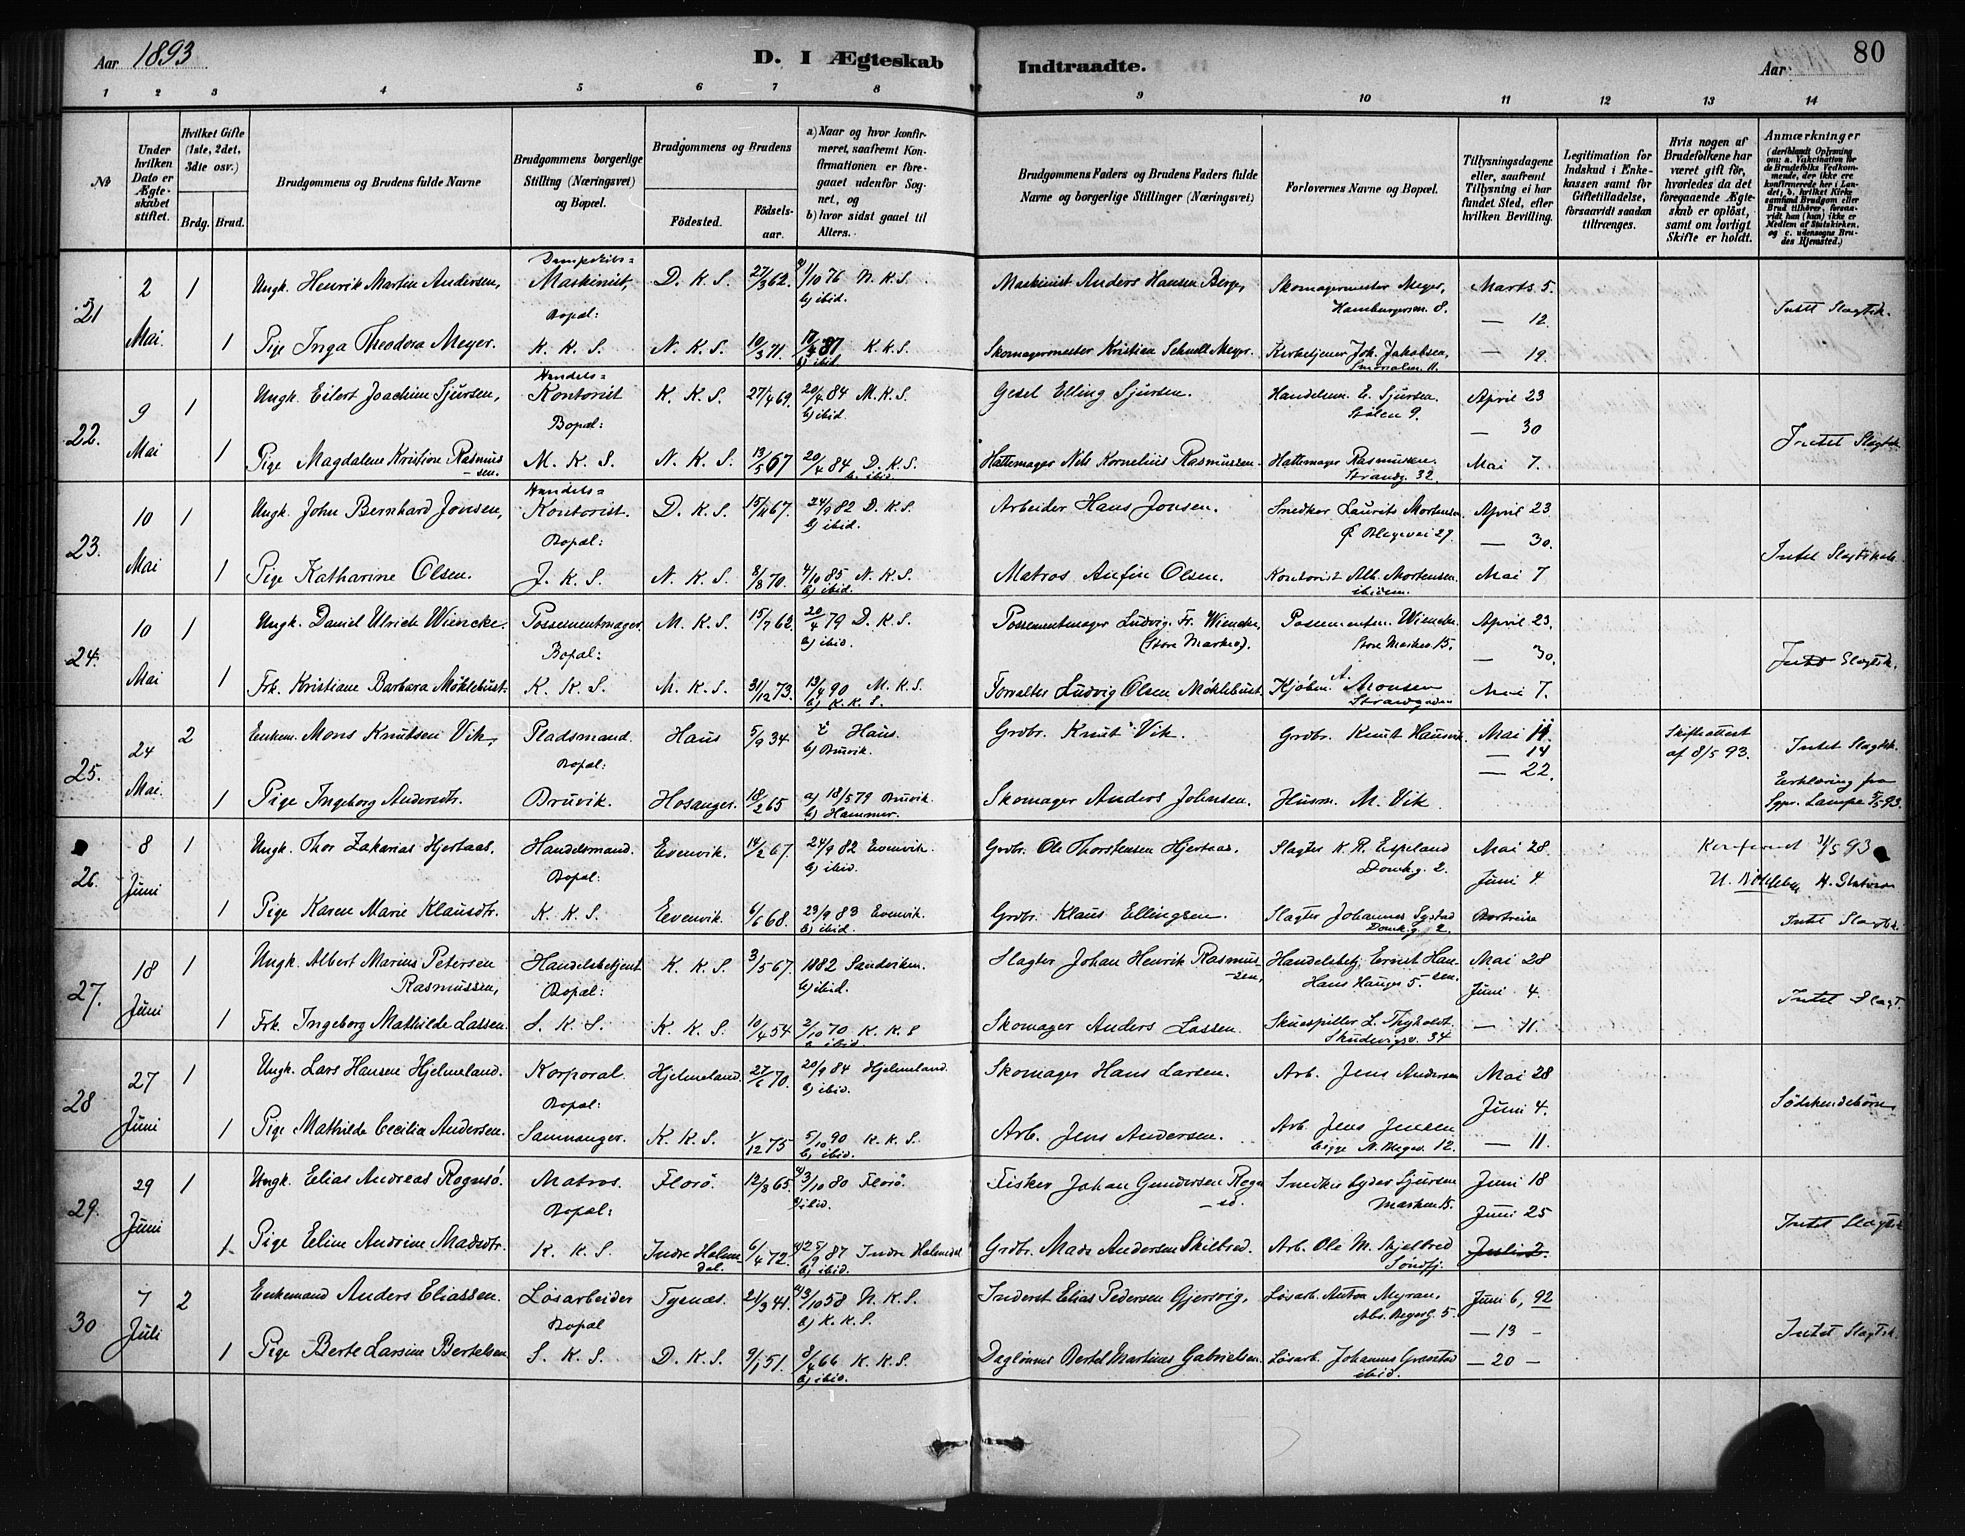 Aar 1893
D. I Ægteskab Indtraadte.
Aar 80
1 2 3 4 5 6 7 8 9 10 11 12 13 14
No
Under hvilken Dato er Ægteskabet stiftet.
Hvilket Gifte (1ste, 2det, 3die osv.)
Brdg. Brud.
Brudgommens og Brudens fulde Navne
Brudgommens borgerlige Stilling (Næringsvei) og Bopæl.
Brudgommens og Brudens
Födested. Födsels-aar.
a) Naar og hvor konfirmeret, saafremt Konfirmationen er foregaaet udenfor Sognet, og
b) hvor sidst gaaet til Alters.
Brudgommens Faders og Brudens Faders fulde Navne og borgerlige Stillinger (Næringsvei)
Forlovernes Navne og Bopæl.
Tillysningsdagene eller, saafremt Tillysning ei har fundet Sted, efter hvilken Bevilling.
Legitimation for Indskud i Enkekassen samt for Giftetilladelse, forsaavidt saadan tiltrænges.
Hvis nogen af Brudefolkene har været gift før, hvorledes da det foregaaende Ægteskab er opløst, samt om lovligt Skifte er holdt.
Anmærkninger
21 2 Mai 1 Ungk. Henrik Martin Andersen, Maskinist, Bopæl: D. K. S. 27/3 62. a) 1/10 76 N. K. S. b) ibid. Maskinist Anders Hansen Berge, Skomagermester Meyer, Hamburgersm. 8. Marts 5. — 12. Intet Slagtsk.
1 Pige Inga Theodora Meyer. K. K. S. N. K. S. 10/3 71. K. K. S. b) ibid. Skomagermester Kristian Schnell Meyer. Kirketjener Joh. Jakobsen, — 19.
22. 9 Mai 1 Ungk. Eilert Joachim Sjursen, Handels= Kontorist Bopæl: K. K. S. 27/4 69. 20/4 84 M. K. S. b) ibid. Gesel Elling Sjursen. Handelsm. E. Sjursen Stølen 9. April 23 — 30 Intet Slagtsk.
1 Pige Magdalene Kristine Rasmussen. M. K. S. N. K. S. 13/5 67 20/4 84 D. K. S. b. ibid. Hattemager Nils Kornelius Rasmussen. Hattemager Rasmussen. Strandg. 32. Mai 7.
23. 10 Mai 1 Ungk. John Bernhard Jonsen, Handels= Kontorist. Bopæl: D. K. S. 15/11 67. 24/9 82 D. K. S. b) ibid. Arbeider Hans Jonsen. Snedker Laurits Mortensen Ø. Blegevei 27. April 23 — 30. Intet Slagtskab.
1 Pige Katharine Olsen. J. K. S. N. K. S. 8/8 70. 4/10 85 N. K. S. b) ibid. Matros Anfin Olsen. Kontorist Alb. Mortensen. ibidem. Mai 7
24. 10 Mai 1 Ungk. Daniel Ulrich Wiencke. Possementmager. Bopæl: M. K. S. 15/7 62. 20/4 79 D. K. S. b) ibid. Possementmager Ludvig Fr. Wiencke, (Store Marked). Possementm. Wiencke. Store Marken 15. April 23. — 30. Intet Slagtsk.
1 Frk. Kristiane Barbara Møklebust. K. K. S. M. K. S. 31/12 73. 13/4 90 M. K. S. b) K. K. S. Forvalter Ludvig Olsen Møklebust. Kjøbm. A. Monsen Strandgaden Mai 7.
25. 24 Mai. 2 Enkem. Mons Knutsen Vik, Pladsmand. Bopæl: Haus 5/9 34 Haus. b) Bruvik. Grdbr. Knut Vik. Grdbr. Knut Hausvik. Mai 11. — 14 — 22. Skifteattest af 8/5 93. Intet Slagtsk.
1 Pige Ingeborg Andersdtr. Bruvik. Hosanger. 18/2 65 a) 18/5 79 Bruvik. b) Hammer. Skomager Anders Johnsen. Husm. M. Vik Erklæring fra Sgpr. Lampe
26. 8 Juni 1 Ungk. Thor Zakarias Hjertaas. Handelsmand. Bopæl: Evenvik. 14/2 67. 24/9 82 Evenvik. b) ibid. Grdbr. Ole Thorstensen Hjertaas. Slagter K. R. Espeland Domkg. 2. Mai 28. Juni 4 31/5 93
1 Pige Karen Marie Klausdtr. K. K. S. Evenvik. 6/6 68. 23/9 83 Evenvik. b) ibid. Grdbr. Klaus Ellingsen. Slagter Johannes Systad Domkg. 2. Bortreise Intet Slagtsk.
27. 18 Juni 1 Ungk. Albert Marius Petersen Rasmussen, Handelsbetjent Bopæl: K. K. S. 3/5 67. 1882 Sandviken. b) ibid. Slagter Johan Henrik Rasmussen, Handelsbetj. Ernst Hansen. Hans Hauges 5. Mai 28 Juni 4. Intet Slagt.
1 Frk. Ingeborg Mathilde Lassen. S. K. S. K. K. S. 10/4 54 2/10 70 K. K. S b. ibid. Skomager Anders Lassen. Skuespiller L. Thyholst. Skudevigsv. 34 — 11.
28 27 Juni 1 Ungk. Lars Hansen Hjelmeland. Korporal. Bopæl: Hjelmeland. 27/6 70. 20/9 84 Hjelmeland. b) ibid. Skomager Hans Larsen. Arb. Jens Andersen Mai 28 Juni 4. Södskendebörn.
1 Pige Mathilde Cecilia Andersen. Samnanger. K. K. S. 1/12 75 5/10 90 K. K. S. b) ibid. Arb. Jens Andersen. Arb. Jens Jensen begge N. Blegev. 12. — 11.
29. 29 Juni 1 Ungk. Elias Andreas Rognsö. Matros. Bopæl: Florö. 12/8 65. a) 3/10 80 Florö. b) ibid. Fisker Johan Gundersen Rognsö. Snedker Lyder Sjursen Marken 15. Juni 18 Juni 25 Intet Slagtsk
1 Pige Eline Andrine Madsdtr. K. K. S. Indre Holmedal. 6/4 72. a) 25/9 87 Indre Holmedal b) ibid. Grdbr. Mads Andersen Skilbred. Arb. Ole M. Skjelbred Söndfj. Juli 2.
30 7 Juli 2 Enkemand Anders Eliassen. Løsarbeider Bopæl Tysnæs. 21/3 41. a) 3/10 58 N. K. S. b) K. K. S. Inderst Elias Pedersen Gjersvig, Løsarb. Anton Myran, Juni 6, 92 — 13 - Intet Slagtsk.
1 Pige Berte Larsine Bertelsen. S. K. S. D. K. S. 9/1 51. 8/4 66 K. K. S. b) ibid. Daglønner Bertel Martinus Gabrielsen. Løsarb. Johannes ibid. — 20 —